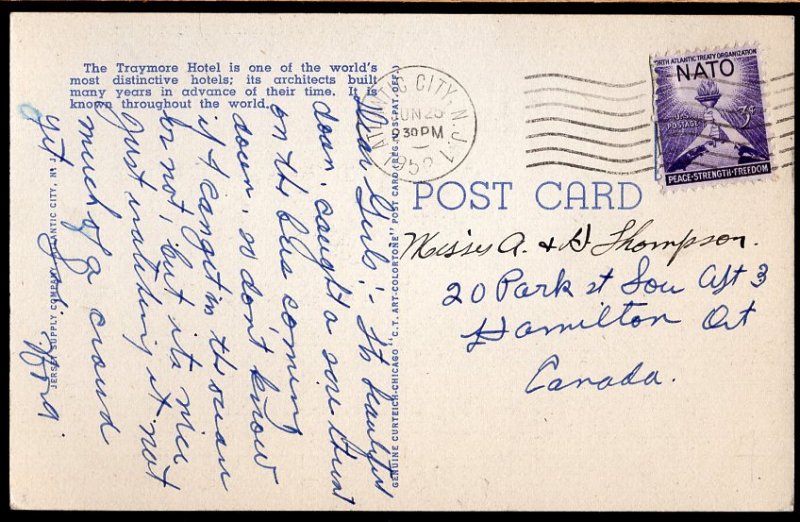 The Traymore Hotel is one of the world's
most distinctive hotels; its architects built
many years in advance of their time. It is
known throughout the world.
Dear Girls:- Its beautiful
down. caught a sore throat
on the bus coming
down. so don't know
if I can get in the ocean
or not, but its nice
Just watching it not
much of a crowd
yet
JERSEY SUPPLY COMPANY, ATLANTIC CITY, N. J.
GENUINE CURTEICH-CHICAGO "C.T. ART-COLORTONE" POST CARD (REG. U.S. PAT. OFF.)
ATLANTIC CITY, N.J. 1
JUN 25
930 PM
1952
NORTH ATLANTIC TREATY ORGANIZATION
NATO
3¢
U.S. POSTAGE
PEACE-STRENGTH-FREEDOM
POST CARD
Misses A. & H Thompson.
20 Park st Sou Apt 3
Hamilton Ont
Canada.